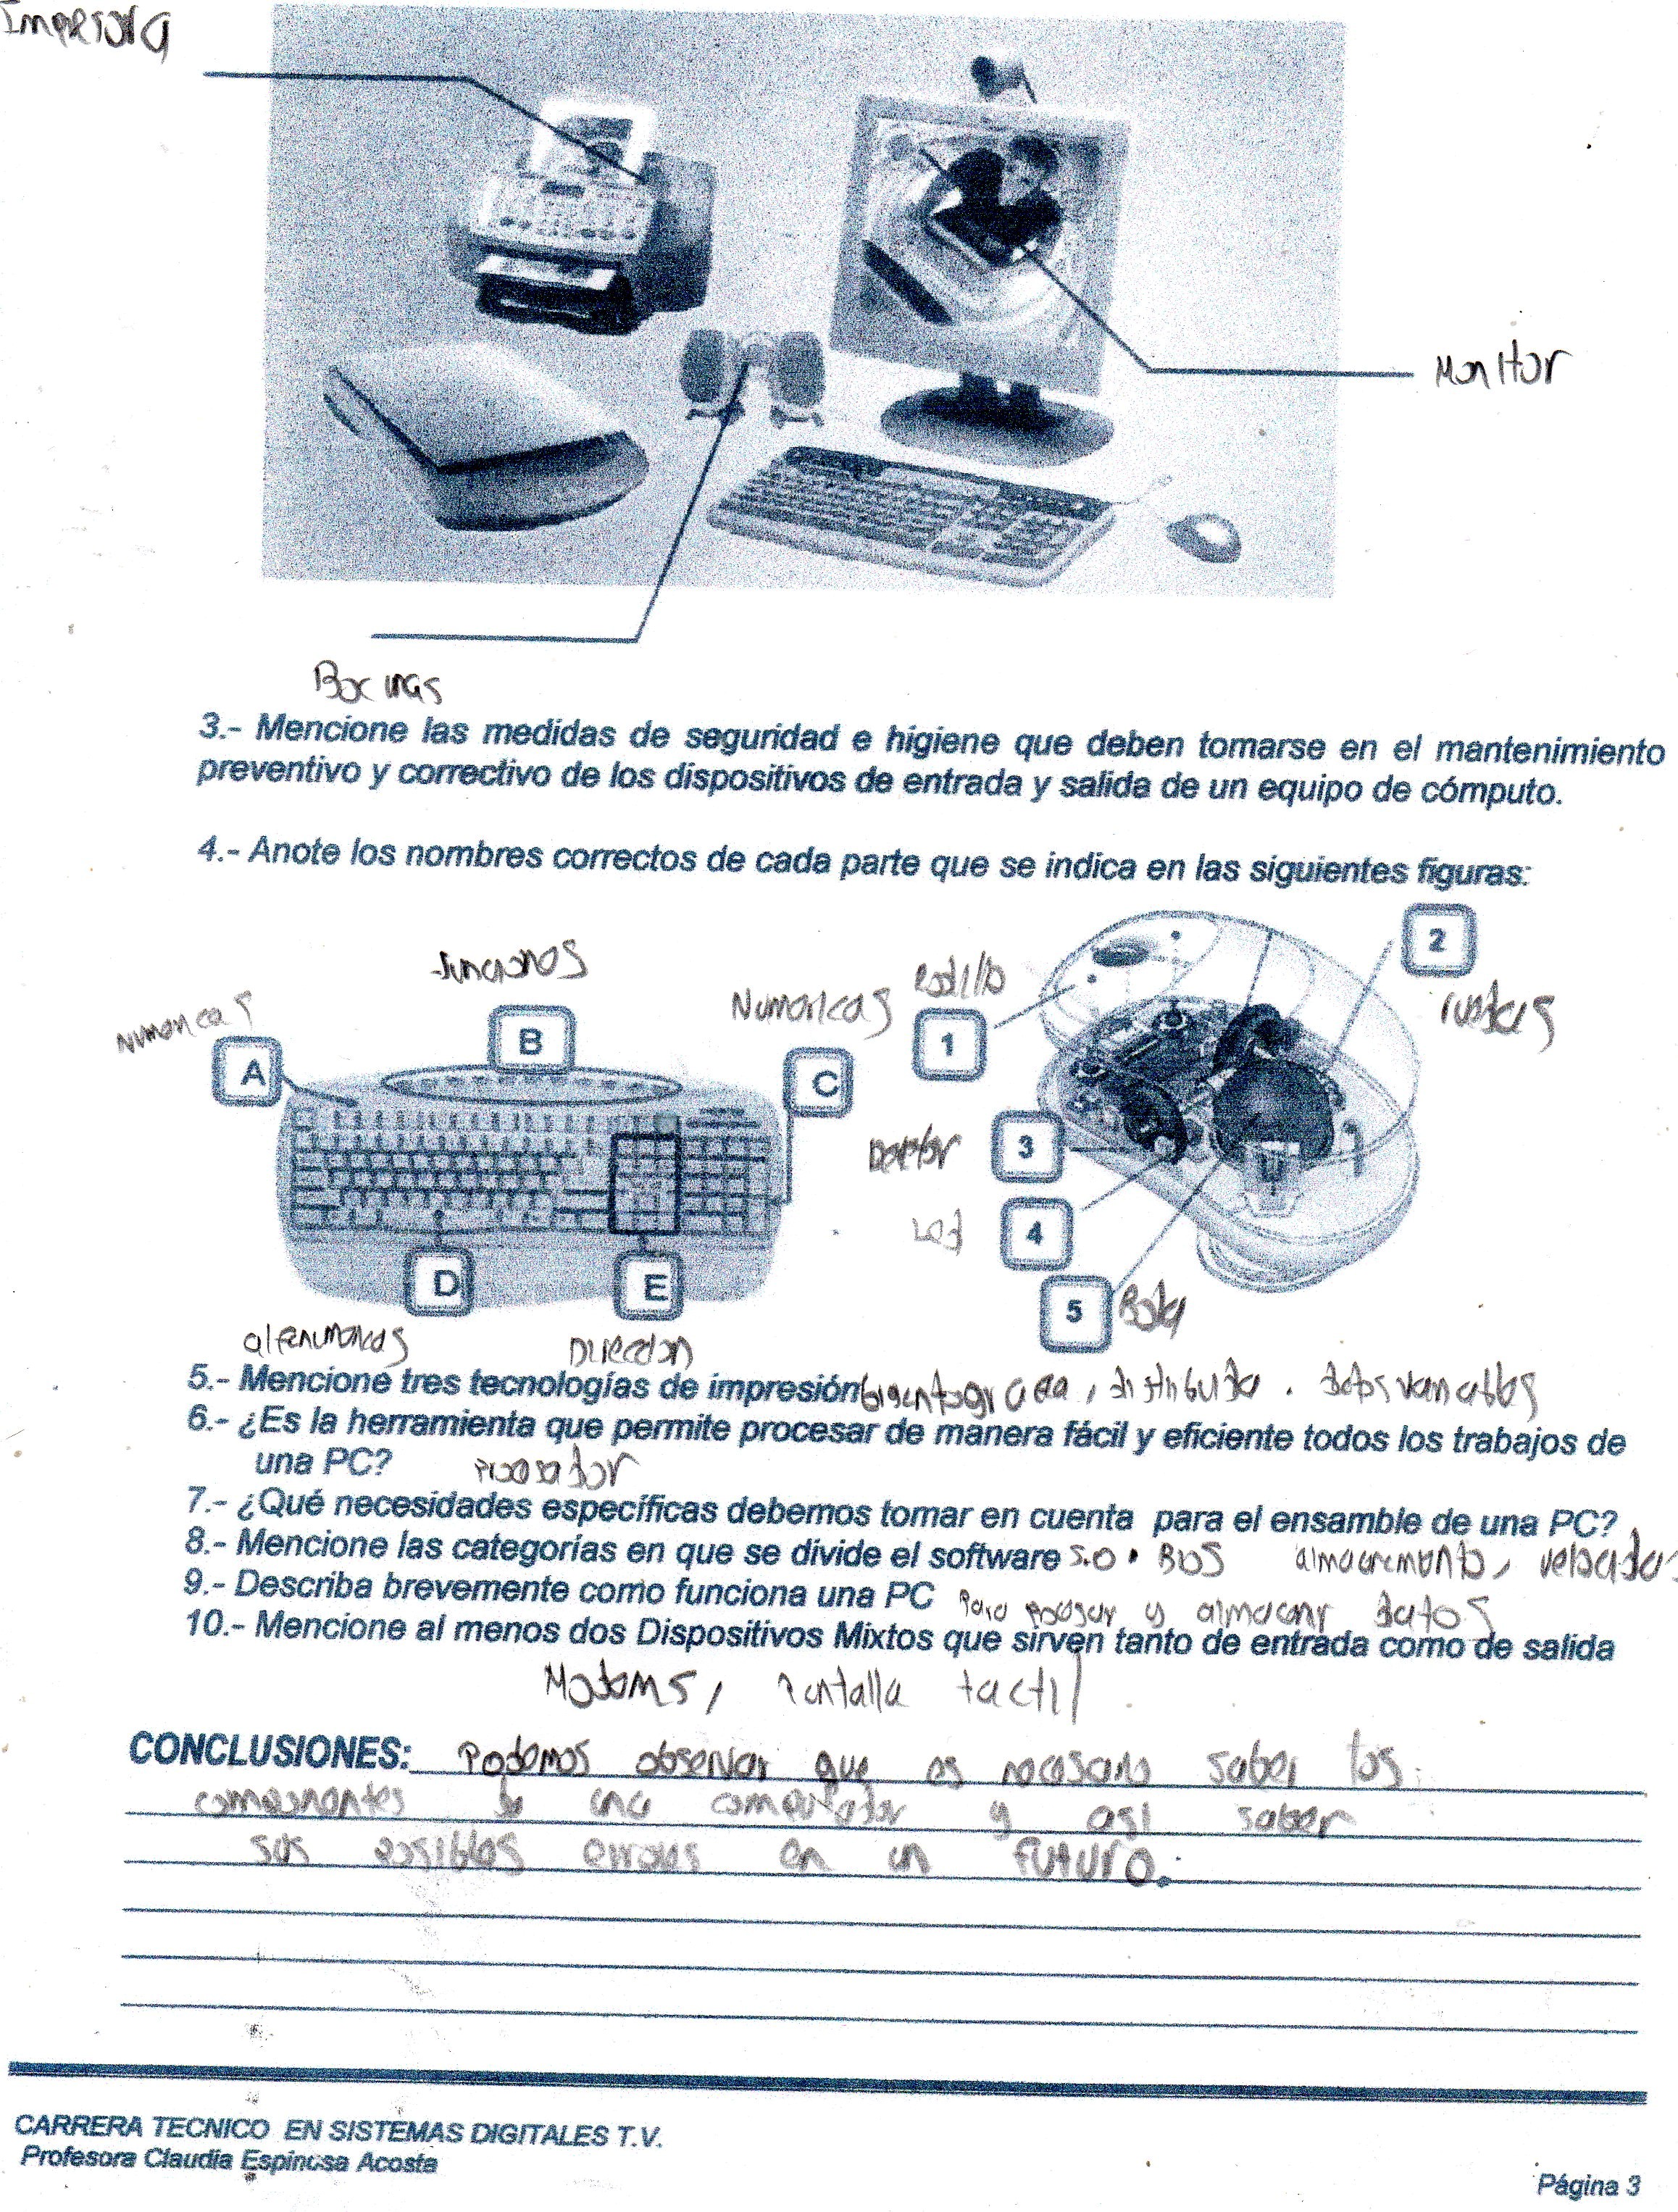 Impresora
Monitor
Bocinas
3.- Mencione las medidas de seguridad e higiene que deben tomarse en el mantenimiento
preventivo y correctivo de los dispositivos de entrada y salida de un equipo de cómputo.
4.- Anote los nombres correctos de cada parte que se indica en las siguientes figuras:
funciones
Numericas
Numericas
Rodillo
ruedas
A
B
C
1
2
3
Led
4
D
E
5
Bola
alfanumericas
Direccion
5.- Mencione tres tecnologías de impresión
6.- ¿Es la herramienta que permite procesar de manera fácil y eficiente todos los trabajos de
una PC? procesador
7.- ¿Qué necesidades específicas debemos tomar en cuenta para el ensamble de una PC?
8.- Mencione las categorías en que se divide el software S.O. BIOS
9.- Describa brevemente como funciona una PC Para procesar y almacenar datos
10.- Mencione al menos dos Dispositivos Mixtos que sirven tanto de entrada como de salida
Modems, Pantalla tactil
CONCLUSIONES: Podemos observar que es necesario saber los
componentes de una computador y asi saber
sus posibles errores en un futuro.
CARRERA TECNICO EN SISTEMAS DIGITALES T.V.
Profesora Claudia Espinosa Acosta
Página 3